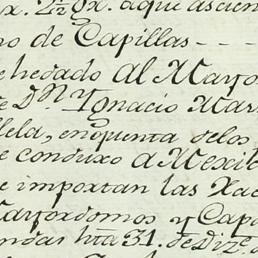 aque ascien
no de Capillas - - -
e hedado Al Mayor
e Dⁿ Ygnacio Mar
llela, enquenta delos
e conduxo a Mexi
e importan las Xa
Mayordomos y Cap
endas hta 31. de Dize. d